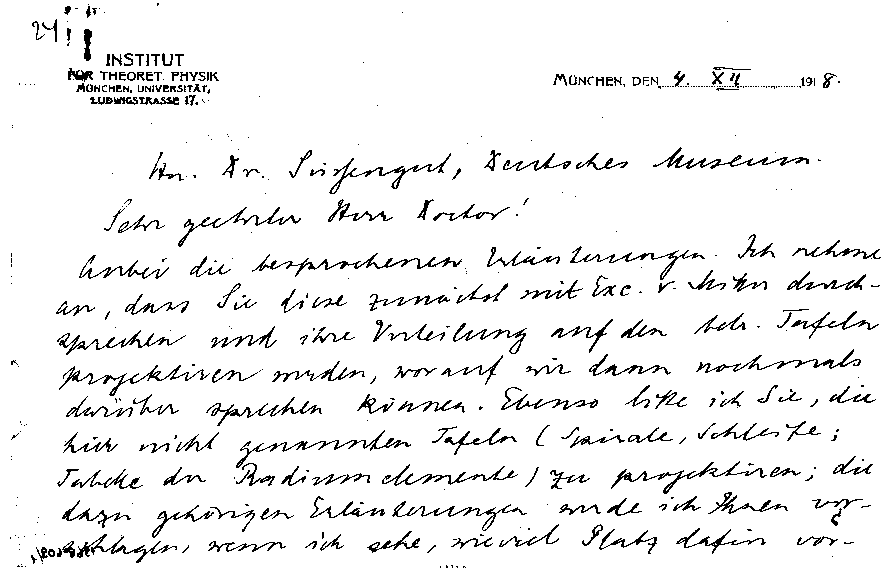 24
INSTITUT
FÜR THEORET. PHYSIK
MÜNCHEN, UNIVERSITÄT,
LUDWIGSTRASSE 17.
MÜNCHEN, DEN 4. XII 1918.
Hn. Dr. Süssengut, Deutsches Museum.
Sehr geehrter Herr Doctor!
Anbei die besprochenen Erläuterungen. Ich nehme
an, dass Sie diese zunächst mit Exc. v. Miller durch-
sprechen und ihre Verteilung auf den betr. Tafeln
projektiren werden, worauf wir dann nochmals
darüber sprechen können. Ebenso bitte ich Sie, die
hier nicht genannten Tafeln (Spirale, Schleife;
Tabelle der Radiumelemente) zu projektiren; die
dazu gehörigen Erläuterungen werde ich Ihnen vor-
schlagen, wenn ich sehe, wieviel Platz dafür vor-